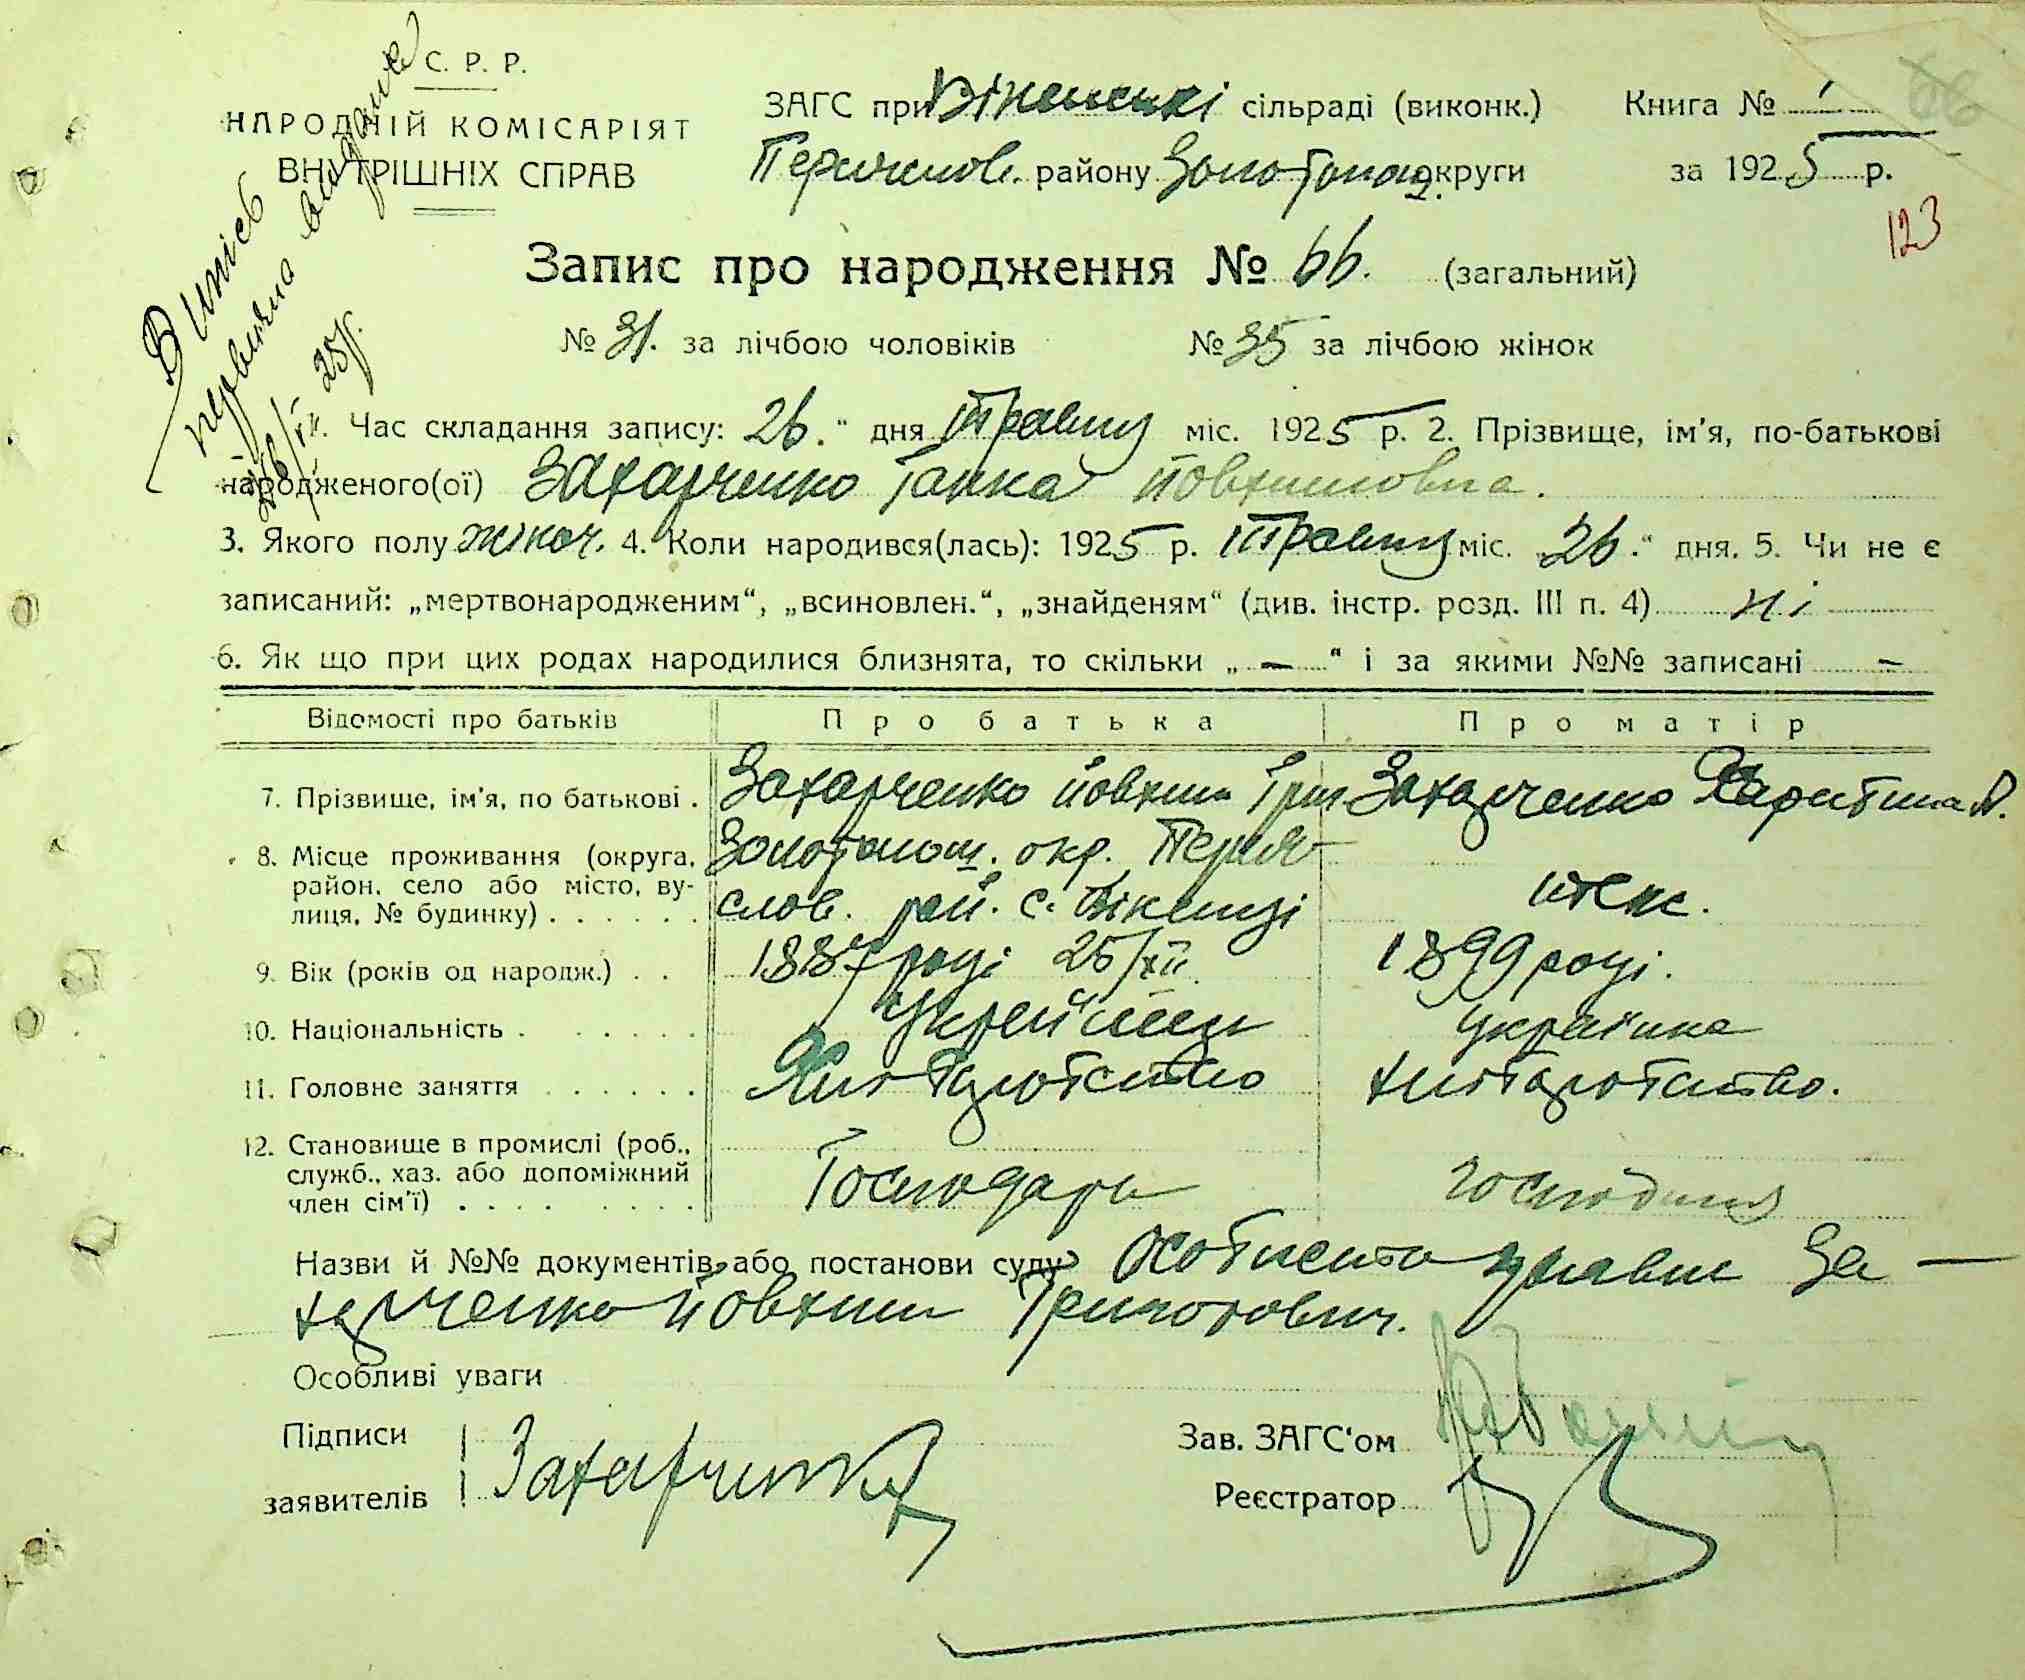 С. Р. Р.
НАРОДНІЙ КОМІСАРІЯТ
ВНУТРІШНІХ СПРАВ
Витяг
первична видана
26/XII 25 р.
ЗАГС при Віненські сільраді (виконк.)
Переяслов. району Золотонош. округи
Книга № 1
за 1925 р.
66
123
Запис про народження № 66. (загальний)
№ 31. за лічбою чоловіків № 35 за лічбою жінок
1. Час складання запису: 26. " дня травня міс. 1925 р. 2. Прізвище, ім'я, по-батькові
народженого(ої) Захарченко Ганна Йовхимовна.
3. Якого полу жіноч. 4. Коли народився(лась): 1925 р. травня міс. „26." дня. 5. Чи не є
записаний: „мертвонародженим“, „всиновлен.“, „знайденям“ (див. інстр. розд. III п. 4) ні
6. Як що при цих родах народилися близнята, то скільки „ — “ і за якими №№ записані —
Відомості про батьків Про батька Про матір
7. Прізвище, ім'я, по батькові . Захарченко Йовхим Григ Захарченко Харитина
8. Місце проживання (округа, район, село або місто, вулиця, № будинку) . . . . . . Золотонош. окр. Переяслов. рай. с. теж.
9. Вік (років од народж.) . . 1887 році 25/XII 1899 році.
10. Національність . . . . . . Українець Українка
11. Головне заняття . . . . . . Хліборобство хліборобство.
12. Становище в промислі (роб., служб., хаз. або допоміжний член сім'ї) . . . . . . . . Господарь господиня
Назви й №№ документів або постанови суду Особиста заява За—
харченко Йовхим Григорович.
Особливі уваги
Підписи
заявителів Захарченко
Зав. ЗАГС'ом
Реєстратор